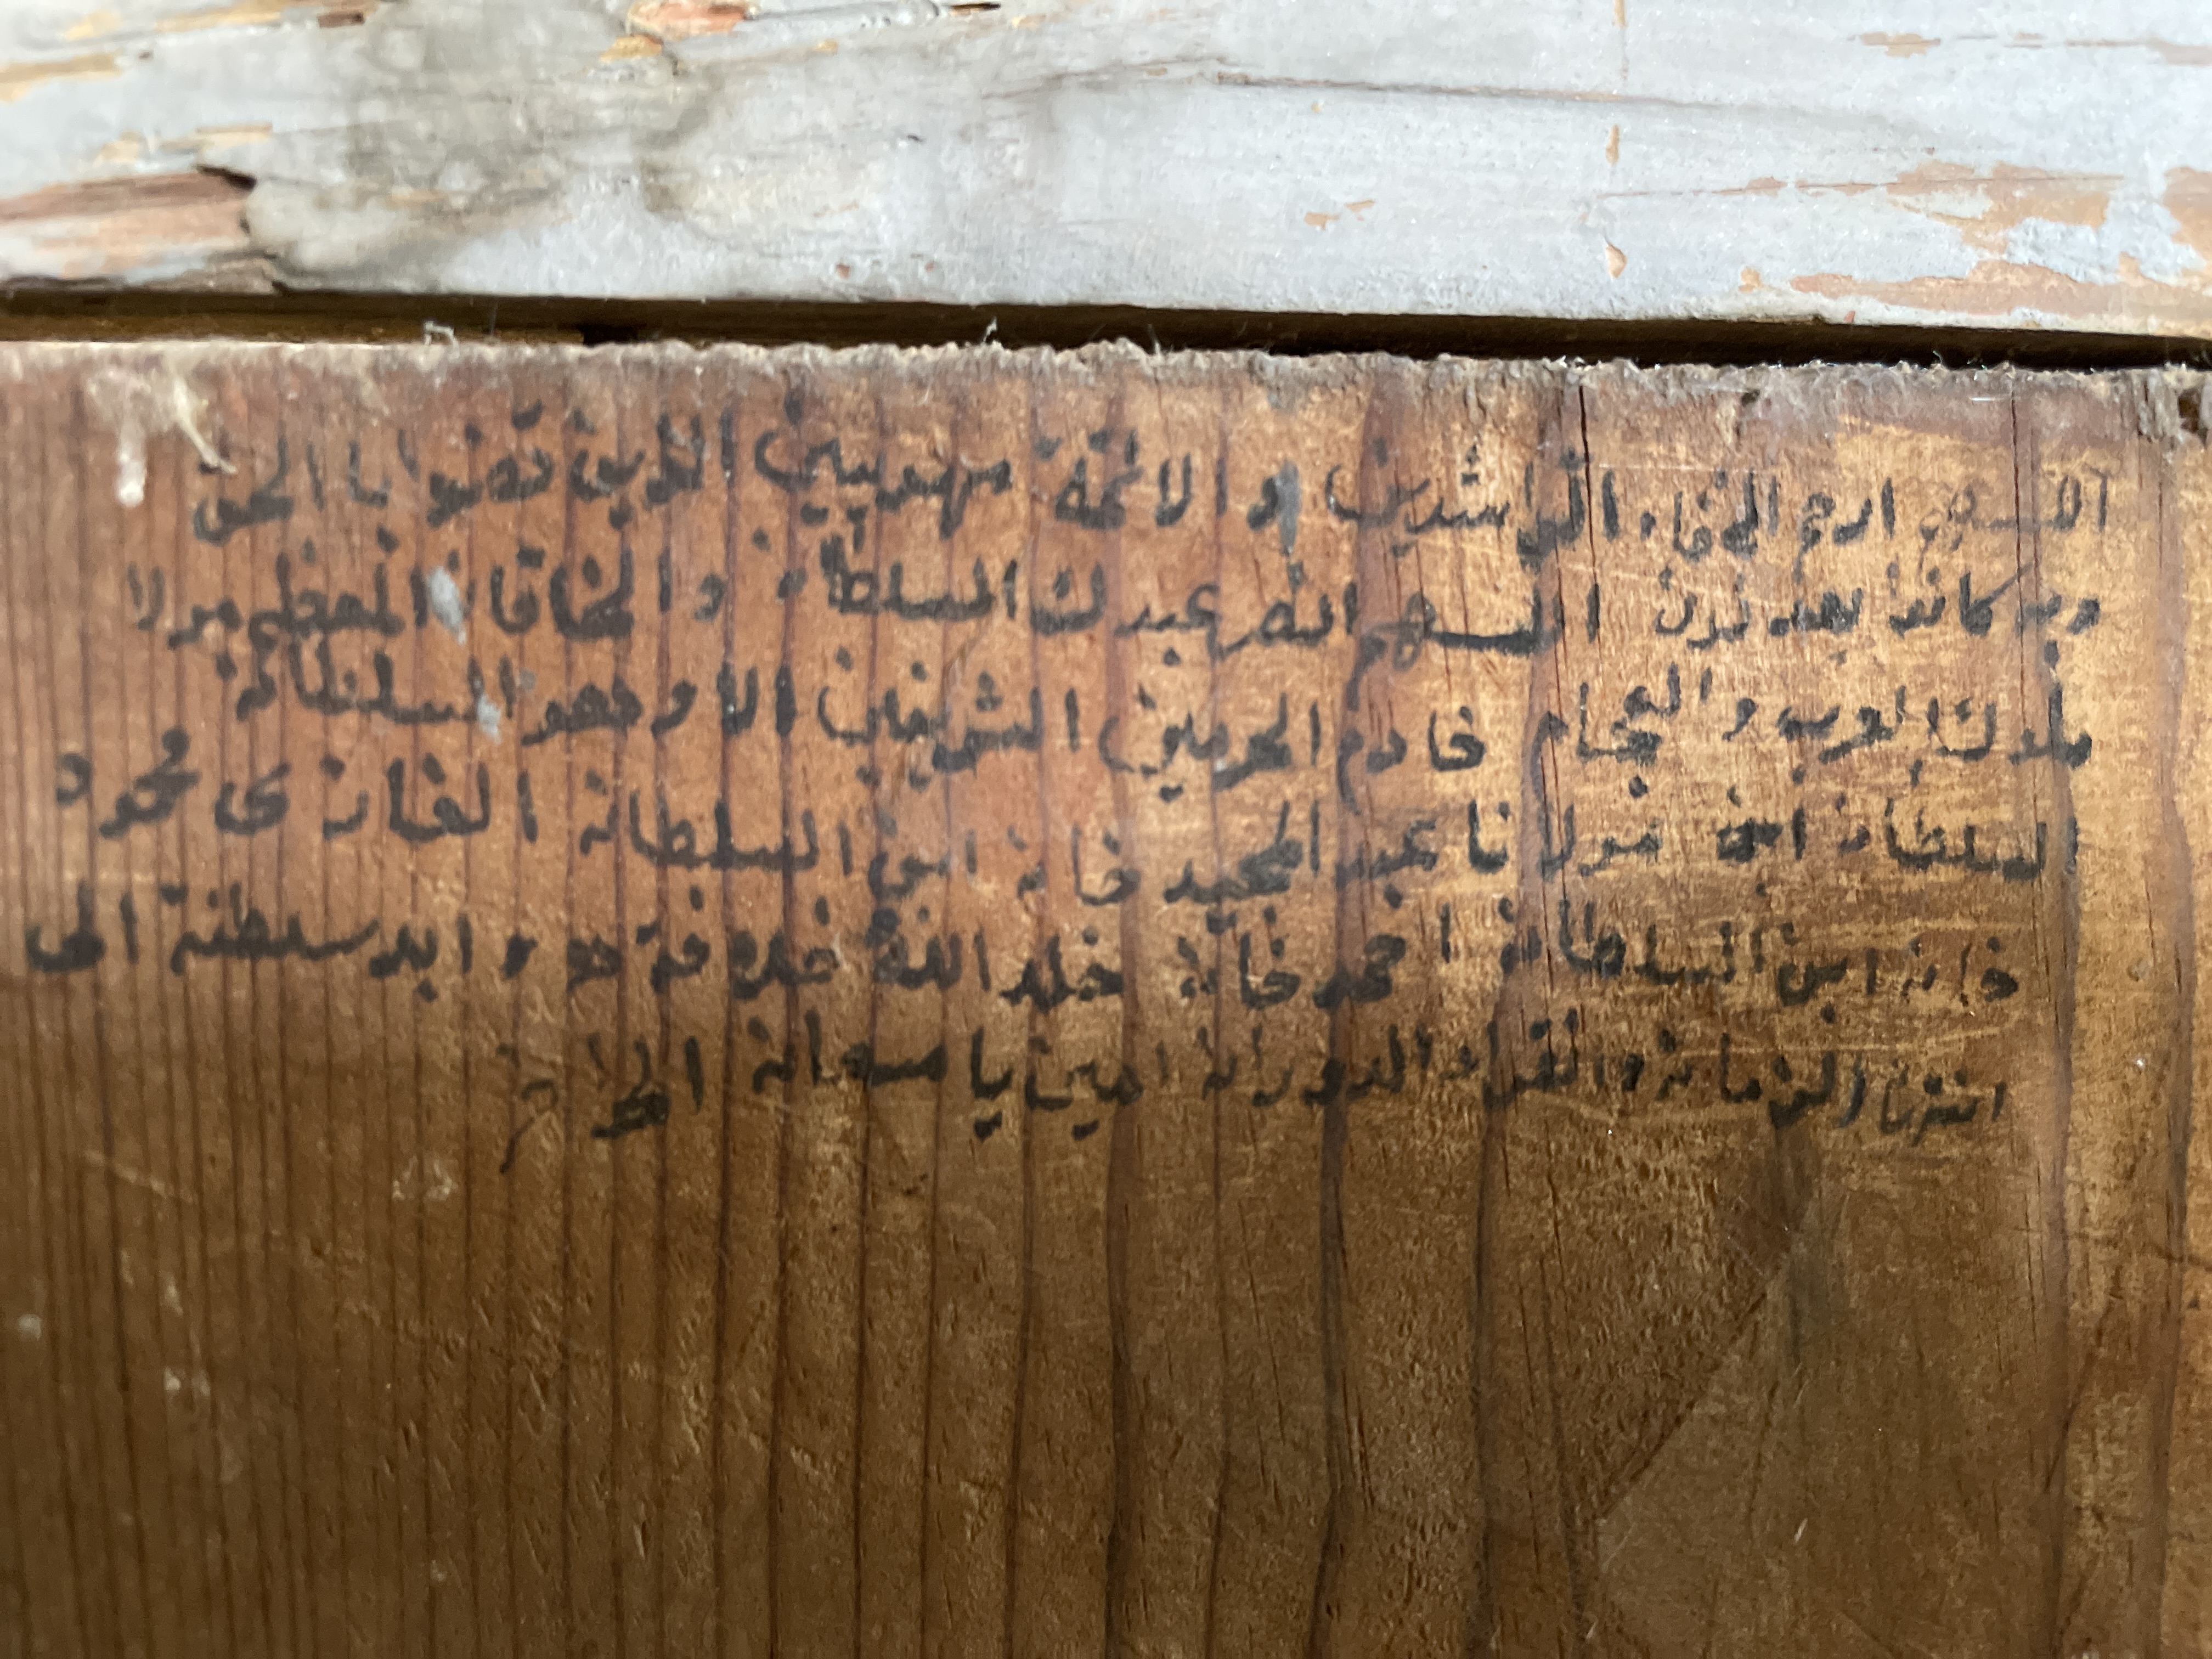 الاسهم ارحم الخفاء الراشدين و الائمة مهديين الذين قضوا بالحق
وبه كانوا يعدلون اللهم انصر عبدك السلطان و الخاقان المعظم مولا
ملوك العرب والعجام خادم الحرمين الشريفين الا وهو السلطان
السلطان ابن مولانا عبد المجيد خان ابن السلطان الغازى محمود
خان ابن السلطان احمد خان خلد الله خلافته و ابد سلطنة الى
انتها الزمان وانقراد الدوران امين يا مستعان